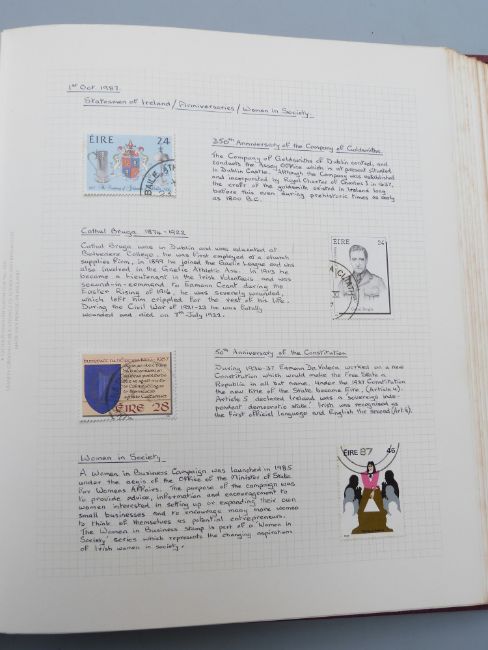 1st Oct 1987.
Statesmen of Ireland / Anniversaries / Women in Society
ÉIRE 24
350th Anniversary of the Company of Goldsmiths.
The Company of Goldsmiths of Dublin control, and
conducts the Assay Office which is at present situated
in Dublin Castle. Although the Company was established
and incorporated by Royal Charter of Charles I in 1637,
the craft of the goldsmith existed in Ireland long
before this even during prehistoric times as early
as 1800 B.C.
BAILE
Cathal Brugha 1874-1922
Cathal Brugha was in Dublin and was educated at
Belvedere College, he was first employed by a church
supplies firm. In 1899 he joined the Gaelic League and was
also involved in the Gaelic Athletic Ass. In 1913 he
became a Lieutenant in the Irish Volunteers and was
second-in-command to Eamonn Ceant during the
Easter Rising of 1916. He was severely wounded,
which left him crippled for the rest of his life.
During the Civil War of 1921-22 he was fatally
wounded and died on 7th July 1922.
ÉIRE 24
BUNREACHT NA hÉIREANN 1937-1987
ÉIRE 28
50th Anniversary of the Constitution
During 1936-37 Eamon De Valera worked on a new
Constitution which would make the Free State a
Republic in all but name. Under the 1937 Constitution
the new title of the State became Eire, (Article 4).
Article 5 declared Ireland was a 'sovereign inde-
pendent democratic state'. Irish was recognised as
the first official language and English the second (Art. 8).
Women in Society.
A Women in Business Campaign was launched in 1985
under the aegis of the Office of the Minister of State
for Womens Affairs. The purpose of the campaign was
to provide advice, information and encouragement to
women interested in setting up or expanding their own
small businesses and to encourage many more women
to think of themselves as potential entrepreneurs.
The Women in Business stamp is part of a 'Women in
Society' series which represents the changing aspirations
of Irish women in society.
ÉIRE 87 46